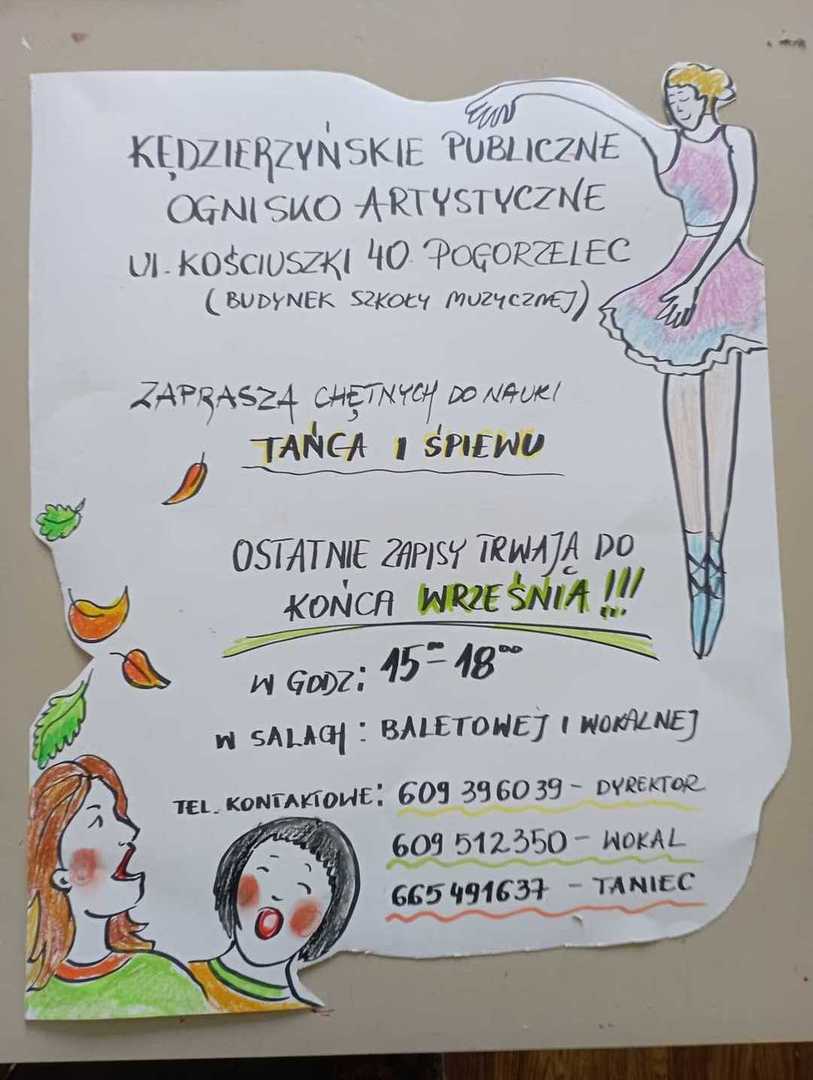 KĘDZIERZYŃSKIE PUBLICZNE
OGNISKO ARTYSTYCZNE
Ul. KOŚCIUSZKI 40 POGORZELEC
(BUDYNEK SZKOŁY MUZYCZNEJ)
ZAPRASZA CHĘTNYCH DO NAUKI
TAŃCA I ŚPIEWU
OSTATNIE ZAPISY TRWAJĄ DO
KOŃCA WRZEŚNIA!!!
W GODZ: 15⁰⁰-18⁰⁰
W SALACH: BALETOWEJ I WOKALNEJ
TEL. KONTAKTOWE: 609 396039 - DYREKTOR
609 512350 - WOKAL
665 491637 - TANIEC